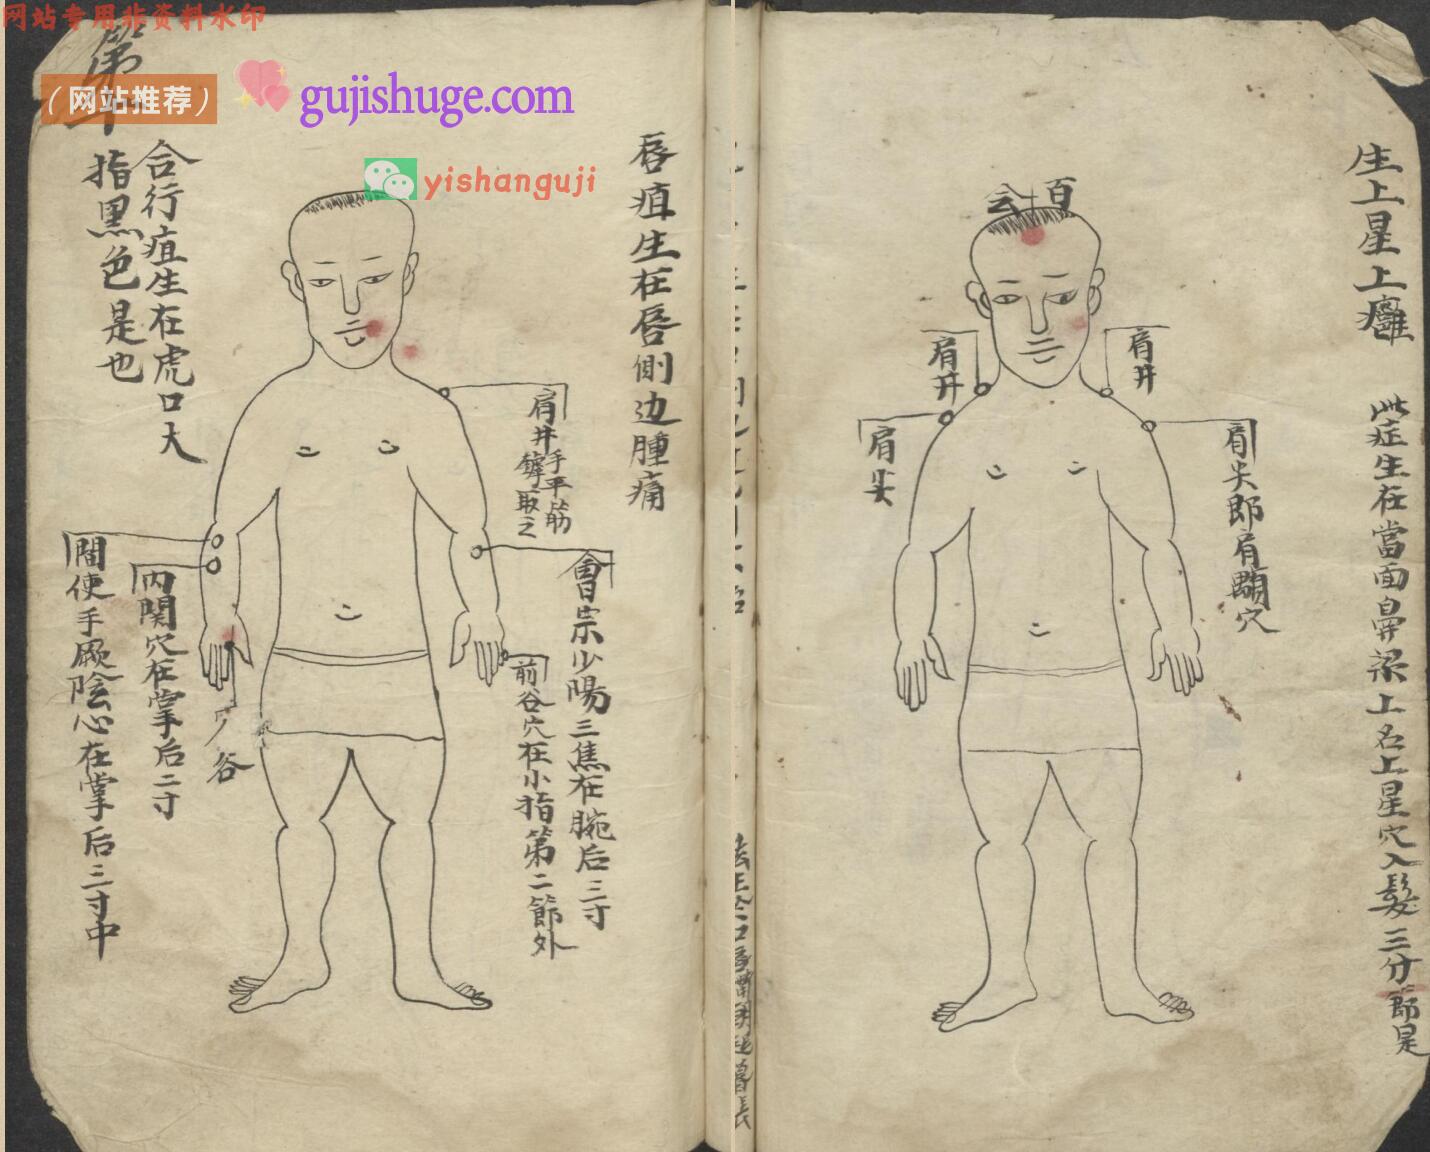 网站专用非资料水印
（网站推荐）
gujishuge.com
yishanguji
生上星上癰
此症生在當面鼻梁上名上星穴入髮三分即是
百会
肩井
肩井
肩尖即肩顒穴
肩尖
唇疽生在唇側边腫痛
肩井手平筋
罅取之
會宗少陽三焦在腕后三寸
前谷穴在小指第二節外
第十
合行疽生在虎口大
指黑色是也
內関穴在掌后二寸
間使手厥陰心在掌后三寸中
谷